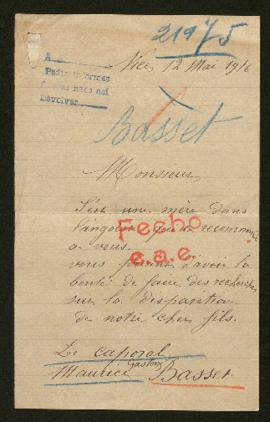 21975
A
Pedir informes
Devolver
Nice, 12 Mai 1916
Basset
Monsieur
C'est une mère dans
l'angoisse qui a recommence
a vous.
Fecho
e.a.e.
vous priant d'avoir la
bonté de faire des recherches
sur la disparition
de notre cher fils.
Le caporal
Gaston
Maurice Basset